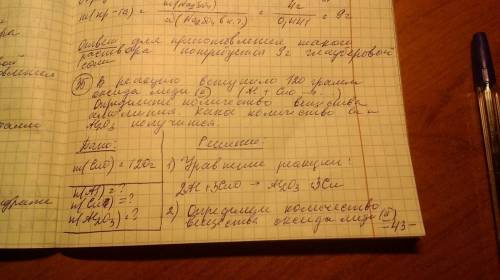 m(пр-ра) = m(Na2SO4) / ω(Na2SO4 в к.г.) = 4г / 0,441 = 9г
Ответ: для приготовления такого
раствора понадобится 9г глауберовой
соли
В реакцию вступило 120 грамм
оксида меди (II) (Al + CuO →...)
Определите количество вещества
алюминия. Какое количество
Al2O3 получится.
Дано:
m(CuO) = 120г
n(Al) = ?
n(CuO) = ?
n(Al2O3) = ?
Решение:
1) Уравнение реакции:
2Al + 3CuO → Al2O3 3Cu
2) Определим количество
вещества оксида меди (II)
-43-